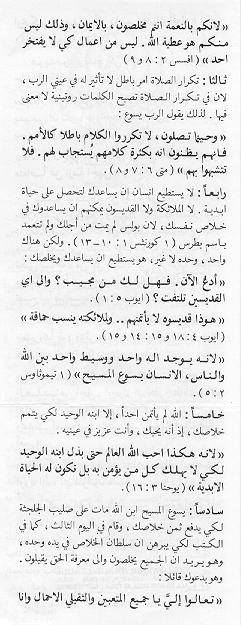 « لانكم بالنعمة انتم مخلصون، بالايمان، وذلك ليس
منكم هو عطية الله . ليس من اعمال كي لا يفتخر
احد » ( افسس ٢ : ٨ و ٩ )
ثالثا : تكرار الصلاة امر باطل لا تأثير له في عيني الرب ،
لان في تكرار الصلاة تصبح الكلمات روتينية لا معنى
فيها . لذلك يقول الرب يسوع :
« وحينما تصلون، لا تكرروا الكلام باطلا كالأمم .
فانهم يظنون انه بكثرة كلامهم يُستجاب لهم . فلا
تتشبهوا بهم » ( متى ٦ : ٧ و ٨ ) .
رابعاً : لا يستطيع انسان ان يساعدك لتحصل على حياة
ابدية . لا الملائكة ولا القديسون يمكنهم ان يساعدوك في
خلاص نفسك، لان بولس لم يمت من أجلك ولم تعتمد
باسم بطرس ( ١ كورنثس ١ : ١٠ - ١٣ ) . ولكن هناك
واحد، وحده لا غير، هو يستطيع ان يساعدك ويخلصك :
« أدعُ الآن . فهل لك من مجيب ؟ والى اي
القديسين تلتفت ؟ ( ايوب ٥ : ١ ) .
« هوذا قديسوه لا يأتمنهم .. وملائكته ينسب حماقة »
( ايوب ٤ : ١٨ و ١٥ : ١٤ و ١٥ ) .
« لانه يوجد اله واحد ووسيط واحد بين الله
والناس، الانسان يسوع المسيح » ( ١ تيموثاوس
٢ : ٥ ) .
خامساً : الله لم يأتمن احداً ، إلا ابنه الوحيد لكي يتمم
خلاصك ، إذ أنه يحبك ، وأنت عزيز في عينيه .
« لانه هكذا احب الله العالم حتى بذل ابنه الوحيد
لكي لا يهلك كل من يؤمن به بل تكون له الحياة
الابدية » ( يوحنا ٣ : ١٦ ) .
سادساً : يسوع المسيح ابن الله مات على صليب الجلجثة
لكي يدفع ثمن خلاصك ، وقام في اليوم الثالث ، كما في
الكتب لكي يبرهن ان سلطان الخلاص في يده وحده ،
وهو يريد ان الجميع يخلصون والى معرفة الحق يقبلون .
وهو يدعوك قائلا :
« تعالوا إليَّ يا جميع المتعبين والثقيلي الاحمال وانا